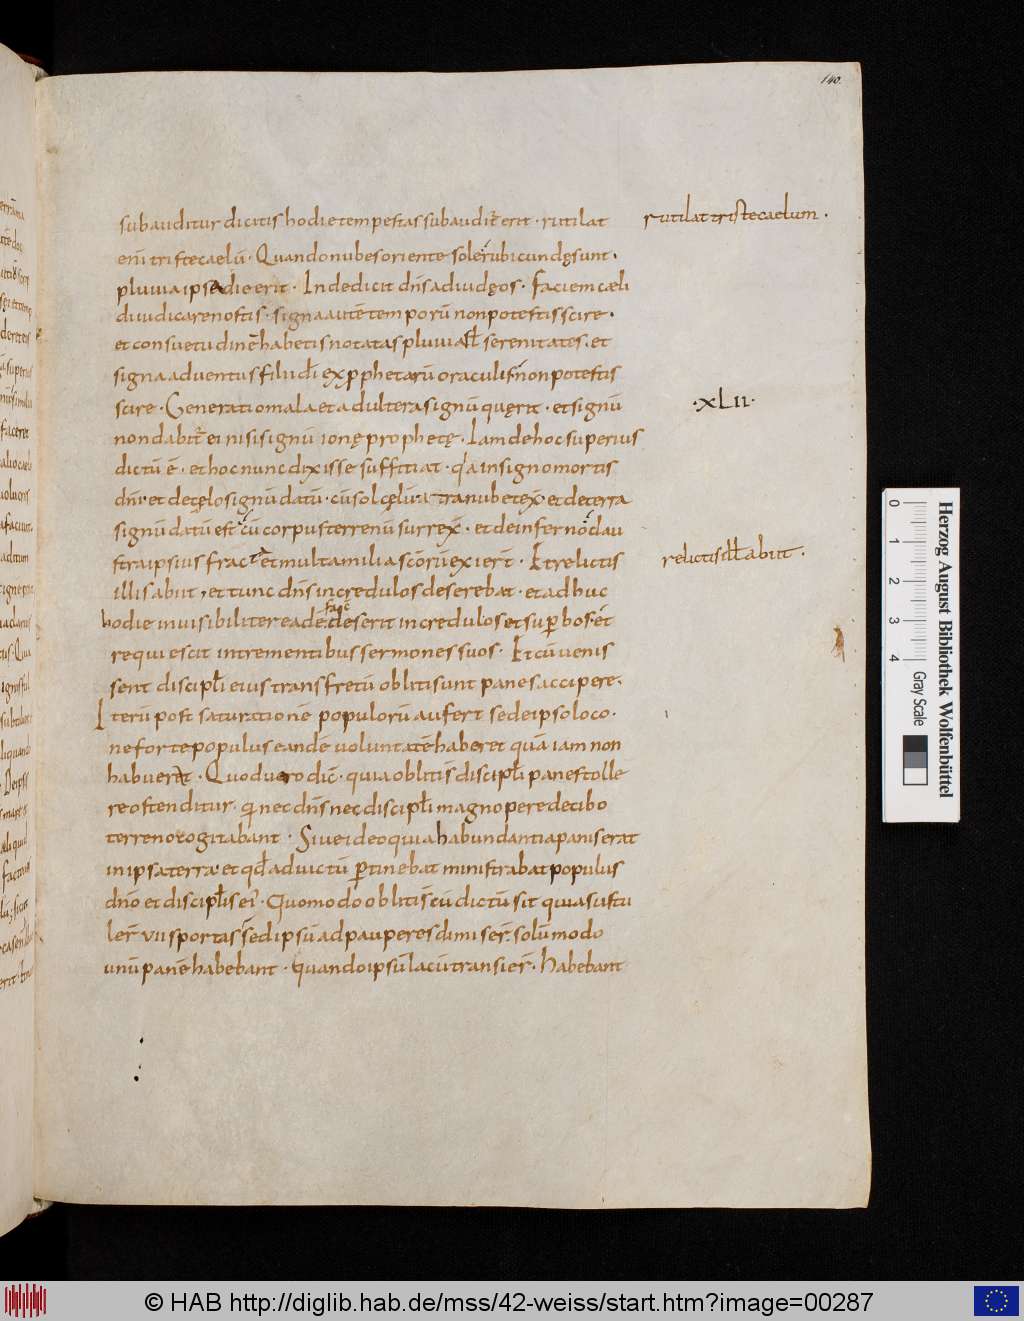 140.
subauditur dicitis hodie tempestas subaudit̅ erit · rutilat
rutilat triste caelum ·
eni̅ triste caelu̅ · Quando nubes oriente sole rubicundę sunt ·
pluuia ipsa die erit · Inde dicit dn̅s ad iudęos · Faciem cæli
diiudicare nostis · signa aute̅ temporu̅ non potestis scire ·
et consuetudine̅ habetis notatas pluuia ł serenitates · et
signa aduentus filii di̅ ex pphetaru̅ oraculis non potestis
scire · Generatio mala et adultera signu̅ quęrit · et signu̅
·XLII·
non dabit̅ ei nisi signu̅ ionę prophetę · Iam de hoc superius
dictu̅ e̅ · et hoc nunc dixisse sufficiat · q̅a in signo mortis
dn̅i et de cęlo signu̅ datu̅ · cu̅ sol cęli · et de terra
signu̅ datu̅ est cu̅ corpus terrenu̅ surrex̅ · et de inferno
stra ipsius fracta et multa milia sc̅oru̅ exier̅t · Et relictis
relictis illis abiit ·
illis abiit, et tunc dn̅s incredulos deserebat · et adhuc
hodie inuisibiliter deserit incredulos et sup̅ hos · et
requiescit intrementibus sermones suos · Et cu̅ uenis
sent discipl̅i eius trans fretu̅ obliti sunt panes accipere ·
Iteru̅ post saturatione̅ populoru̅ aufert se de ipso loco ·
ne forte populus eande̅ uoluntate̅ haberet qua̅ iam non
habueret · Quod uero dic̅ · quia obliti s̅ discipl̅i panes tolle
re ostenditur · q̅ nec dn̅s nec discipl̅i magnopere de cibo
terreno cogitabant · Siue ideo quia habundantia panis erat
in ipsa terra · et qd̅ ad uictu̅ p̅tinebat ministrabat populus
dn̅o et discipl̅is ei · Quomodo obliti s̅ cu̅ dictu̅ sit quia sustu
ler̅ VII sportas sed ipsu̅ ad pauperes dimiser̅ · solu̅modo
unu̅ pane̅ habebant · quando ipsu̅ lacu̅ transier̅ · habebant
Herzog August Bibliothek Wolfenbüttel
0 1 2 3 4
Gray Scale
© HAB http://diglib.hab.de/mss/42-weiss/start.htm?image=00287